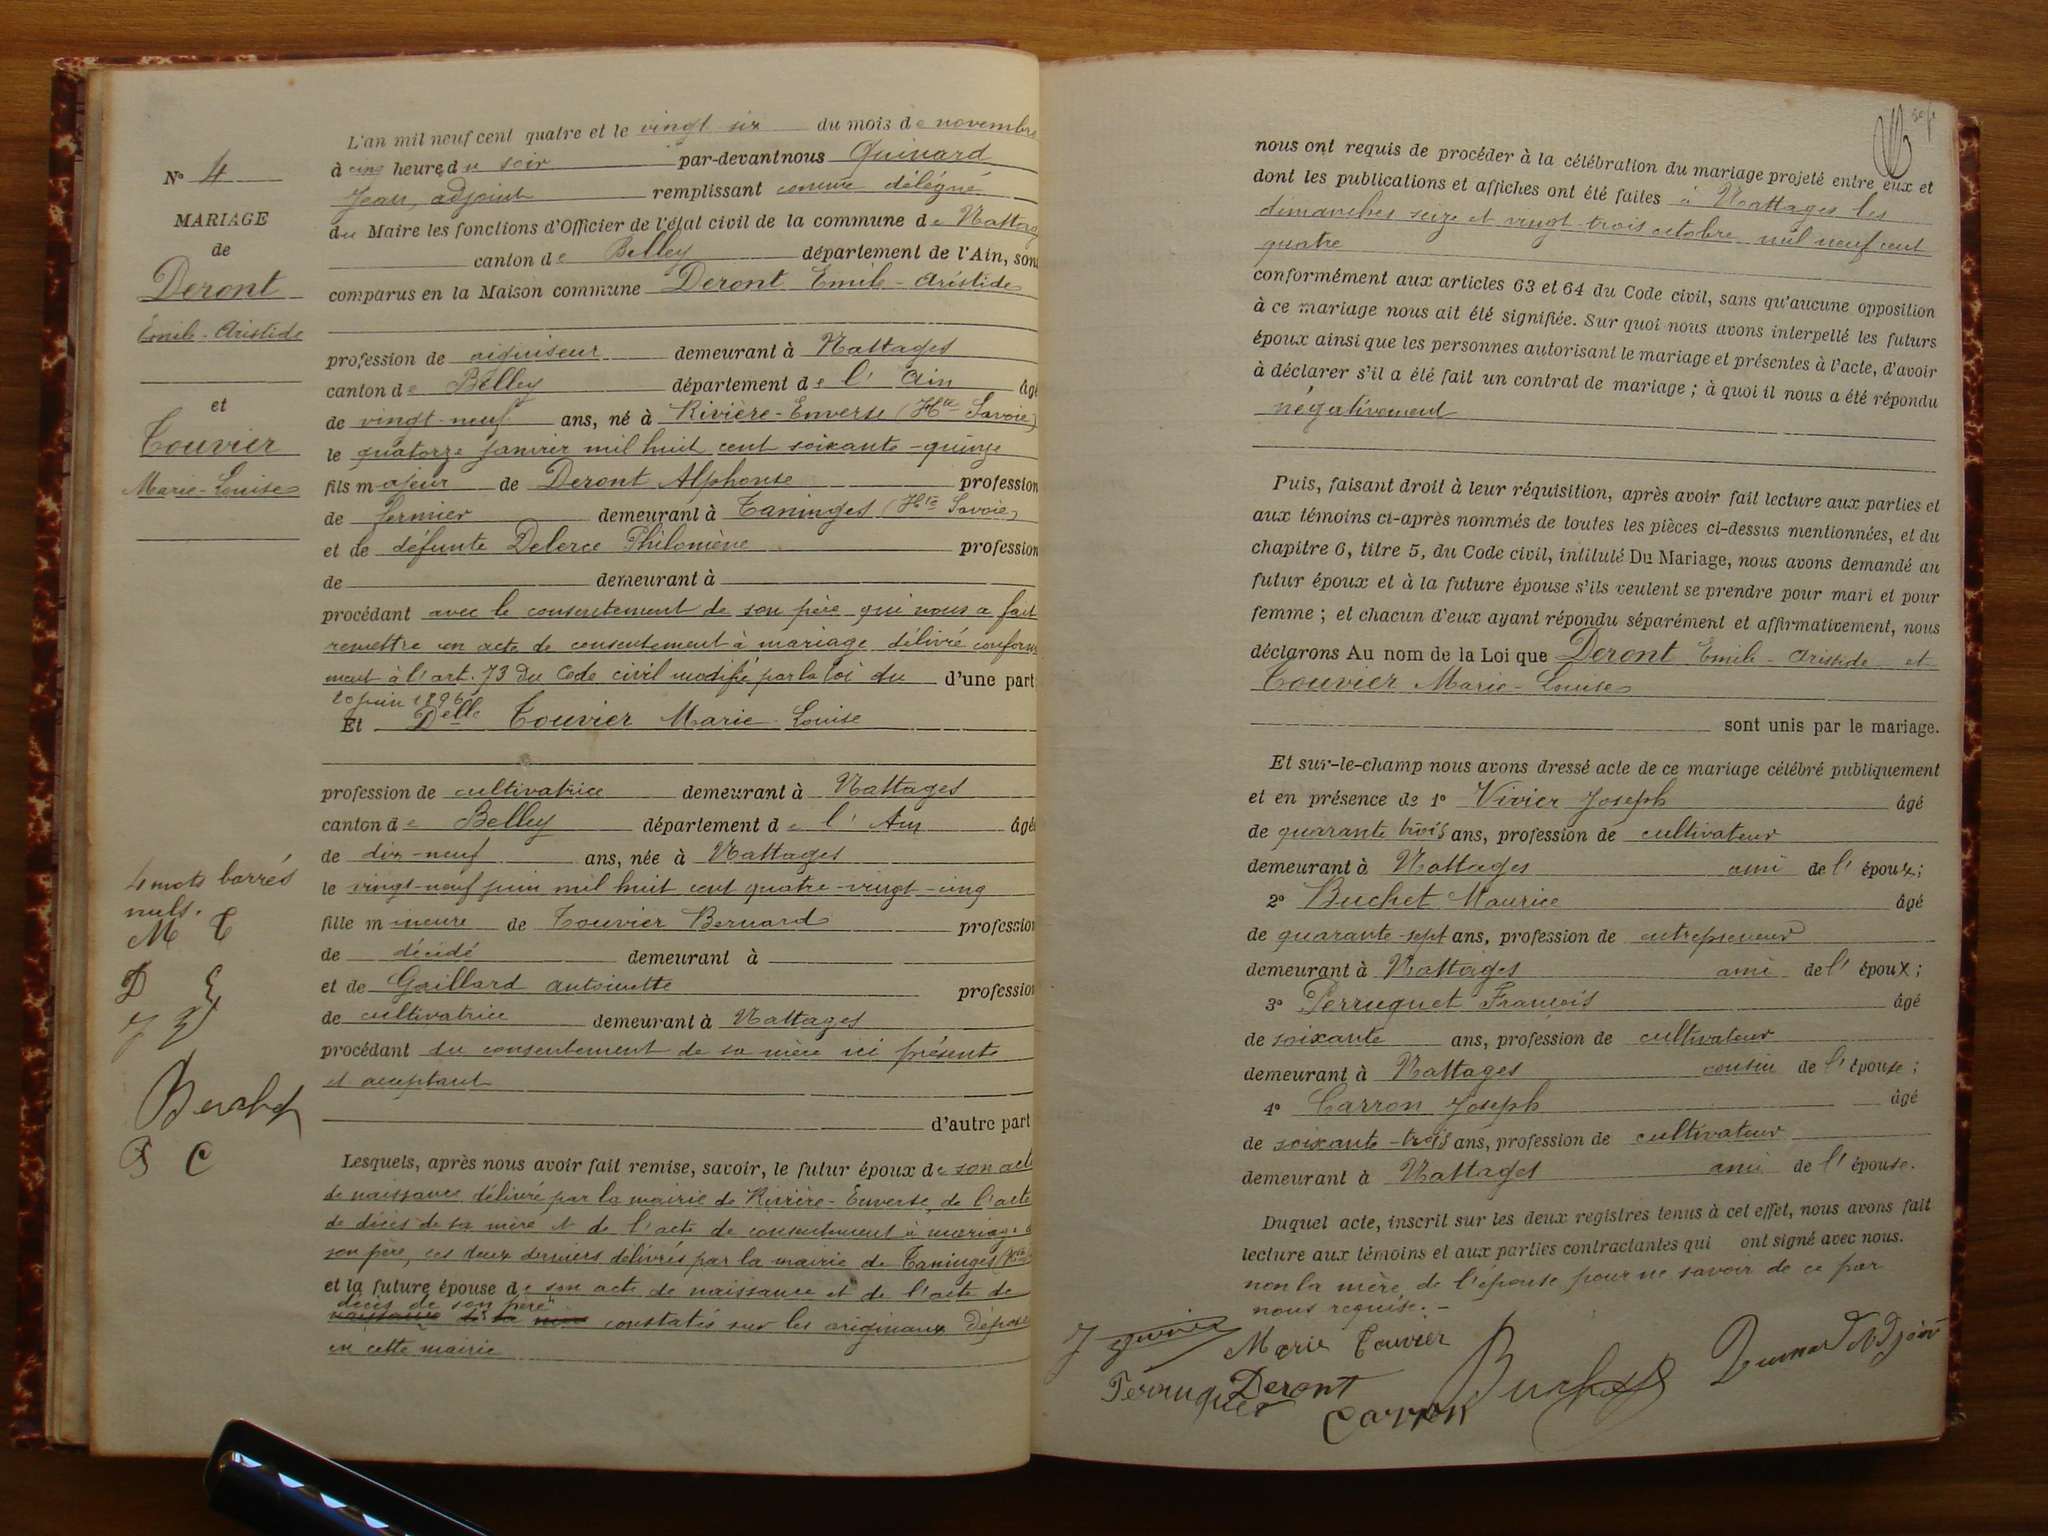 N° 4
MARIAGE
de
Deront
Emile-Aristide
et
Touvier
Marie-Louise
4 mots barrés
nuls.
M T
D E
Buchet
C
L'an mil neuf cent quatre et le vingt six du mois de novembre
à cinq heures du soir par-devant nous Quinard
Jean, adjoint remplissant comme délégué
du Maire les fonctions d'Officier de l'état civil de la commune de Nattages
canton de Belley département de l'Ain, sont
comparus en la Maison commune Deront Emile-Aristide
profession de aiguiseur demeurant à Nattages
canton de Belley département de l'Ain âgé
de vingt-neuf ans, né à Rivière-Enverse (Hte Savoie)
le quatorze janvier mil huit cent soixante-quinze
fils majeur de Deront Alphonse profession
de fermier demeurant à Taninges (Hte Savoie)
et de défunte Delerce Philomène profession
de demeurant à
procédant avec le consentement de son père qui nous a fait
remettre un acte de consentement à mariage délivré conformé
ment à l'art. 73 du Code civil modifié par la loi du d'une part
20 juin 1896
Et Delle Touvier Marie-Louise
profession de cultivatrice demeurant à Nattages
canton de Belley département de l'Ain âgée
de dix-neuf ans, née à Nattages
le vingt-neuf juin mil huit cent quatre-vingt-cinq
fille mineure de Touvier Bernard profession
de décédé demeurant à
et de Gaillard Antoinette profession
de cultivatrice demeurant à Nattages
procédant du consentement de sa mère ici présente
et acceptant
d'autre part
Lesquels, après nous avoir fait remise, savoir, le futur époux de son acte
de naissance délivré par la mairie de Rivière-Enverse, de l'acte
de décès de sa mère et de l'acte de consentement à mariage de
son père, ces deux derniers délivrés par la mairie de Taninges (Hte
et la future épouse de son acte de naissance et de l'acte de
décès de son père
naissance de sa mère constatés sur les originaux déposés
en cette mairie
nous ont requis de procéder à la célébration du mariage projeté entre eux et
dont les publications et affiches ont été faites à Nattages les
dimanches seize et vingt-trois octobre mil neuf cent
quatre
conformément aux articles 63 et 64 du Code civil, sans qu'aucune opposition
à ce mariage nous ait été signifiée. Sur quoi nous avons interpellé les futurs
époux ainsi que les personnes autorisant le mariage et présentes à l'acte, d'avoir
à déclarer s'il a été fait un contrat de mariage ; à quoi il nous a été répondu
négativement
Puis, faisant droit à leur réquisition, après avoir fait lecture aux parties et
aux témoins ci-après nommés de toutes les pièces ci-dessus mentionnées, et du
chapitre 6, titre 5, du Code civil, intitulé Du Mariage, nous avons demandé au
futur époux et à la future épouse s'ils veulent se prendre pour mari et pour
femme ; et chacun d'eux ayant répondu séparément et affirmativement, nous
déclarons Au nom de la Loi que Deront Emile-Aristide et
Touvier Marie-Louise
sont unis par le mariage.
Et sur-le-champ nous avons dressé acte de ce mariage célébré publiquement
et en présence de 1° Vivier Joseph âgé
de quarante trois ans, profession de cultivateur
demeurant à Nattages ami de l'époux ;
2° Buchet Maurice âgé
de quarante-sept ans, profession de entrepreneur
demeurant à Nattages ami de l'époux ;
3° Perruquet François âgé
de soixante ans, profession de cultivateur
demeurant à Nattages cousin de l'épouse ;
4° Carron Joseph âgé
de soixante-trois ans, profession de cultivateur
demeurant à Nattages ami de l'épouse.
Duquel acte, inscrit sur les deux registres tenus à cet effet, nous avons fait
lecture aux témoins et aux parties contractantes qui ont signé avec nous.
non la mère de l'épouse pour ne savoir de ce par
nous requise. -
Marie Touvier
Perruquet Deront Carron Buchet